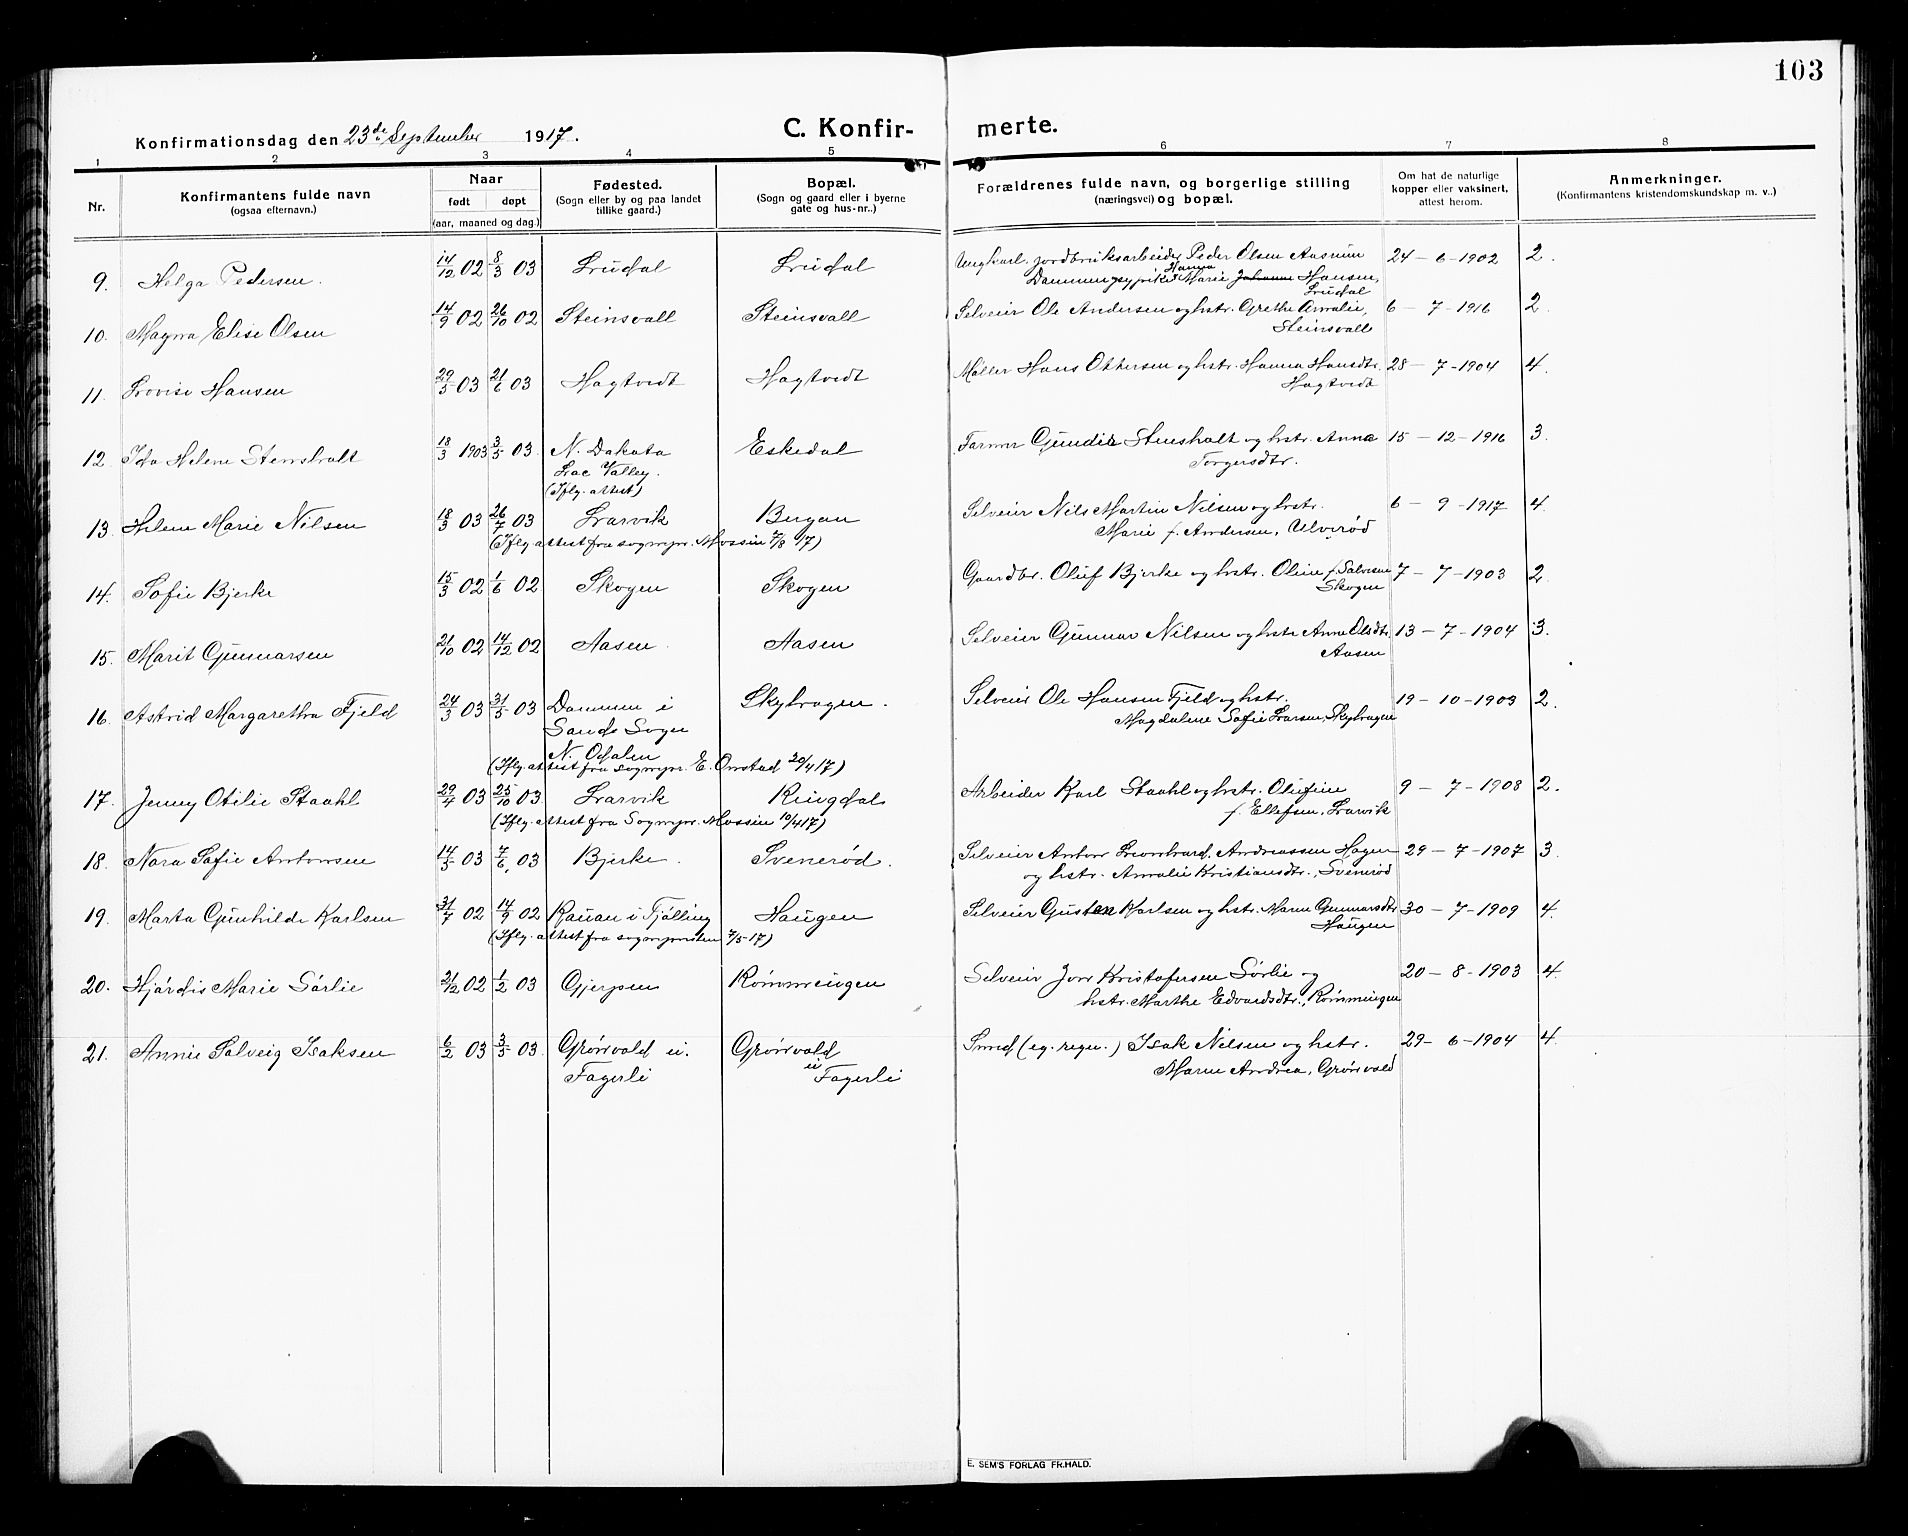 103
Konfirmationsdag den 23de September 1917.
C. Konfir- merte.
1 2 3 4 5 6 7 8
Nr.
Konfirmantens fulde navn
(ogsaa efternavn.)
Naar
født døpt
(aar, maaned og dag.)
Fødested.
(Sogn eller by og paa landet
tillike gaard.)
Bopæl.
(Sogn og gaard eller i byerne
gate og hus-nr..)
Forældrenes fulde navn, og borgerlige stilling
(næringsvei) og bopæl.
Om hat de naturlige
kopper eller vaksinert,
attest herom.
Anmerkninger.
(Konfirmantens kristendomskundskap m. v..)
9. Helga Pedersen. 14/12 02 8/3 03 Lrudal Lrudal Ungkarl, jordbruksarbeider Peder Olsen Aasrum 24-6-1902 2.
Dammen og pike Hanna Marie Johanne Hansen,
Lrudal
10. Magna Elise Olsen 14/9 02 26/10 02 Steinsvall Steinsvall Selveier Ole Andersen og hstr. Grethe Amalie, 6-7-1916 2.
Steinsvall
11. Lovise Hansen 29/5 03 21/6 03 Hagtvedt Hagtvedt Møller Hans Ottersen og hstr. Hanna Hansdtr. 28-7-1904 4.
Hagtvedt
12. Ida Helene Stensholt 18/3 1903 3/5 03. N. Dakota Eskedal Farmer Gunder Stensholt og hstr. Anna 15-12-1916 3.
Lac Valley. Torgersdtr.
(Iflg. attest)
13. Helene Marie Nilsen 18/3 03 26/7 03 Larvik Bergan Selveier Nils Martin Nilsen og hstr. 6-9-1917 4.
(Iflg. attest fra sognepr. Mossin 7/8 17) Marie f. Andersen, Ulverød
14. Sofie Bjerke 15/3 02 1/6 02 Skogen Skogen Gaardbr. Oluf Bjerke og hstr. Oline f. Salvesen 7-7-1903 2.
Skogen
15. Marit Gunnarsen 21/10 02 14/12 02 Aasen. Aasen Selveier Gunnar Nilsen og hstr. Anne Olsdtr. 13-7-1904 3.
Aasen
16. Astrid Margaretha Fjeld 24/3 03 31/5 03 Dammen i Skybragen. Selveier Ole Hansen Fjeld og hstr. 19-10-1903 2.
Sands Sogn Magdalene Sofie Larsen, Skybragen
N. Odalen
(Iflg. attest fra sognepr. E. Onstad 20/4 17)
17. Jenny Otilie Staahl 29/4 03 25/10 03 Larvik Ringdal Arbeider Karl Staahl og hstr. Olufine 9-7-1908 2.
(Iflg. attest fra Sognepr. Mossin 10/4 17) f. Ellefsen, Larvik
18. Nora Sofie Antonsen 14/5 03 7/6 03 Bjerke. Svenerød. Selveier Anton Leonhard Andreassen Hagen 29-7-1907 3.
og hstr. Amalie Kristiansdtr., Svenerød
19. Marta Gunhilde Karlsen 31/7 02 14/9 02 Kauan i Tjølling Haugen Selveier Gusten Karlsen og hstr. Maren Gunnarsdtr. 30-7-1909 4.
(Iflg. attest fra sognepresten 7/5-17) Haugen
20. Hjørdis Marie Sørlie 21/12 02 1/2 03 Gjerpen Rømmingen Selveier Jon Kristofersen Sørlie og 20-8-1903 4.
hstr. Marthe Edvardsdtr., Rømmingen
21. Annie Solveig Isaksen 6/2 03 3/5 03. Grønvold u. Grønvold Smed (eg. regn.) Isak Nilsen og hstr. 29-6-1904 4.
Fagerli u Fagerli Maren Andrea, Grønvold
E. SEM'S FORLAG FR.HALD.